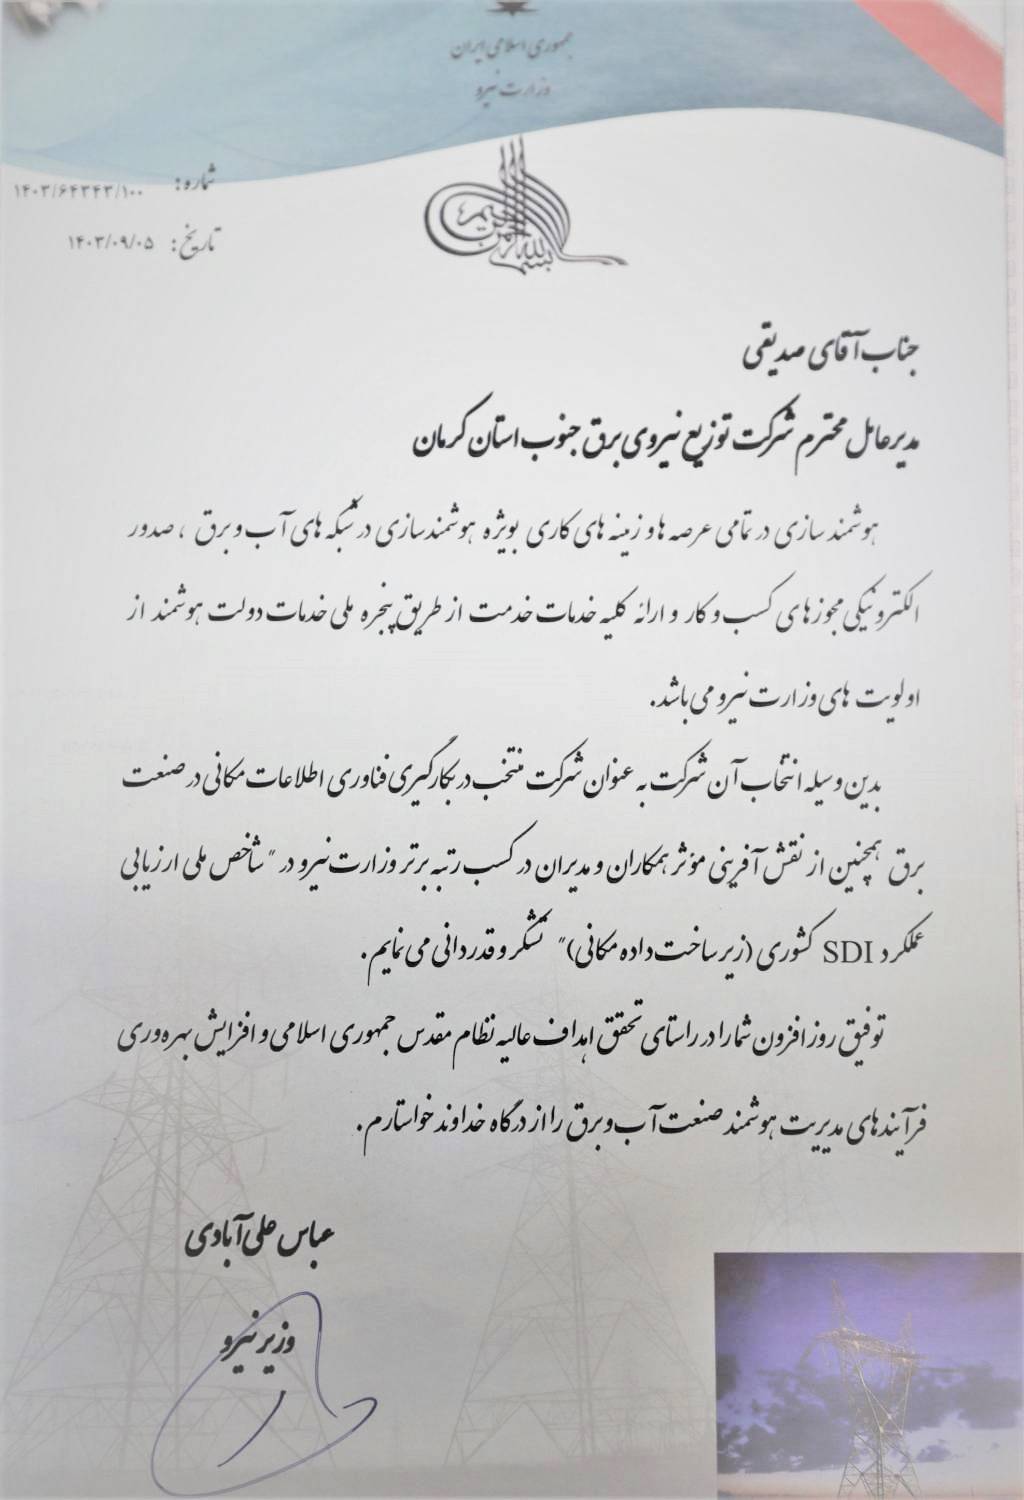 جمهوری اسلامی ایران
وزارت نیرو
شماره: ۱۴۰۳/۶۴۳۴۳/۱۰۰
تاریخ: ۱۴۰۳/۰۹/۰۵
بسم الله الرحمن الرحیم
جناب آقای صدیقی
مدیرعامل محترم شرکت توزیع نیروی برق جنوب استان کرمان
هوشمند سازی در تمامی عرصه ها و زمینه های کاری بویژه هوشمندسازی در شبکه های آب و برق ، صدور
الکترونیکی مجوزهای کسب و کار و ارائه کلیه خدمات خدمت از طریق پنجره ملی خدمات دولت هوشمند از
اولویت های وزارت نیرو می باشد.
بدین وسیله انتخاب آن شرکت به عنوان شرکت منتخب در بکارگیری فناوری اطلاعات مکانی در صنعت
برق همچنین از نقش آفرینی مؤثر همکاران و مدیران در کسب رتبه برتر وزارت نیرو در "شاخص ملی ارزیابی
عملکرد SDI کشوری (زیرساخت داده مکانی)" تشکر و قدردانی می نمایم.
توفیق روزافزون شما را در راستای تحقق اهداف عالیه نظام مقدس جمهوری اسلامی و افزایش بهره وری
فرآیندهای مدیریت هوشمند صنعت آب و برق را از درگاه خداوند خواستارم.
عباس علی آبادی
وزیر نیرو